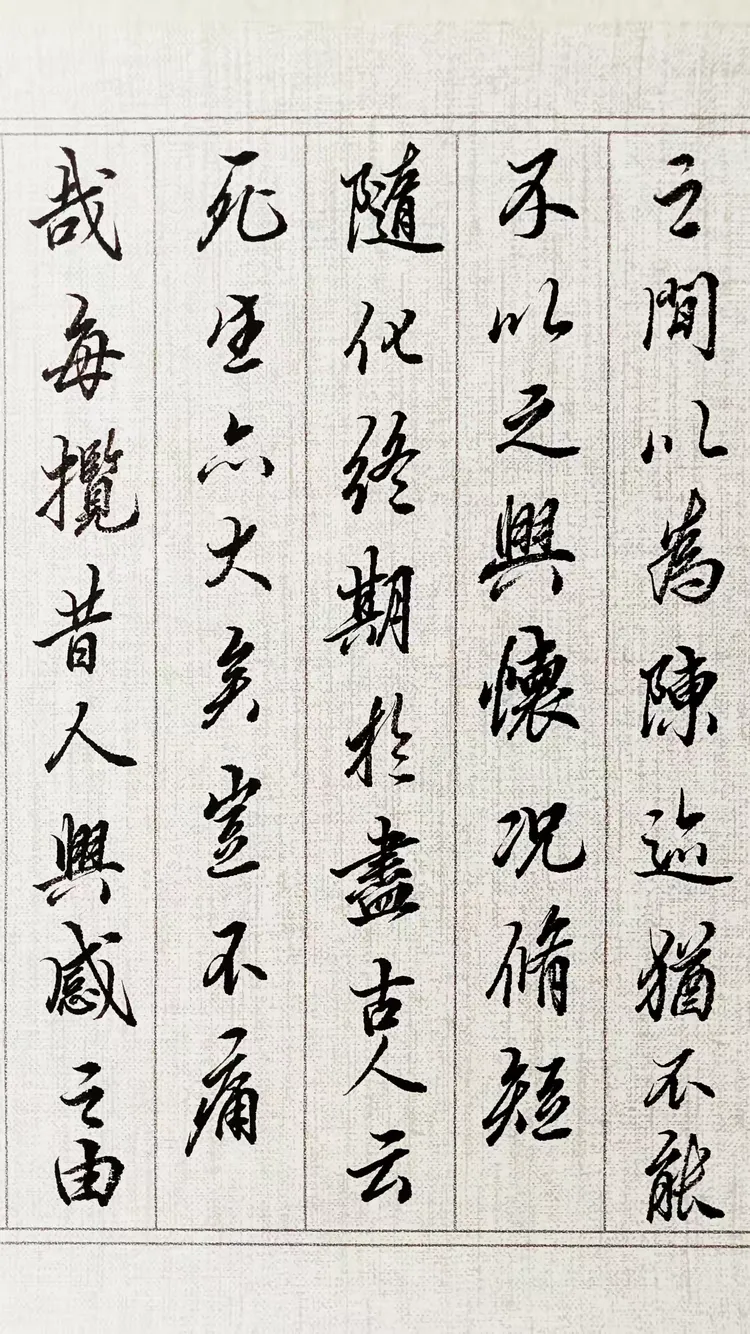 之間以為陳迹猶不能
不以之興懷況脩短
隨化終期於盡古人云
死生亦大矣豈不痛
哉每攬昔人興感之由